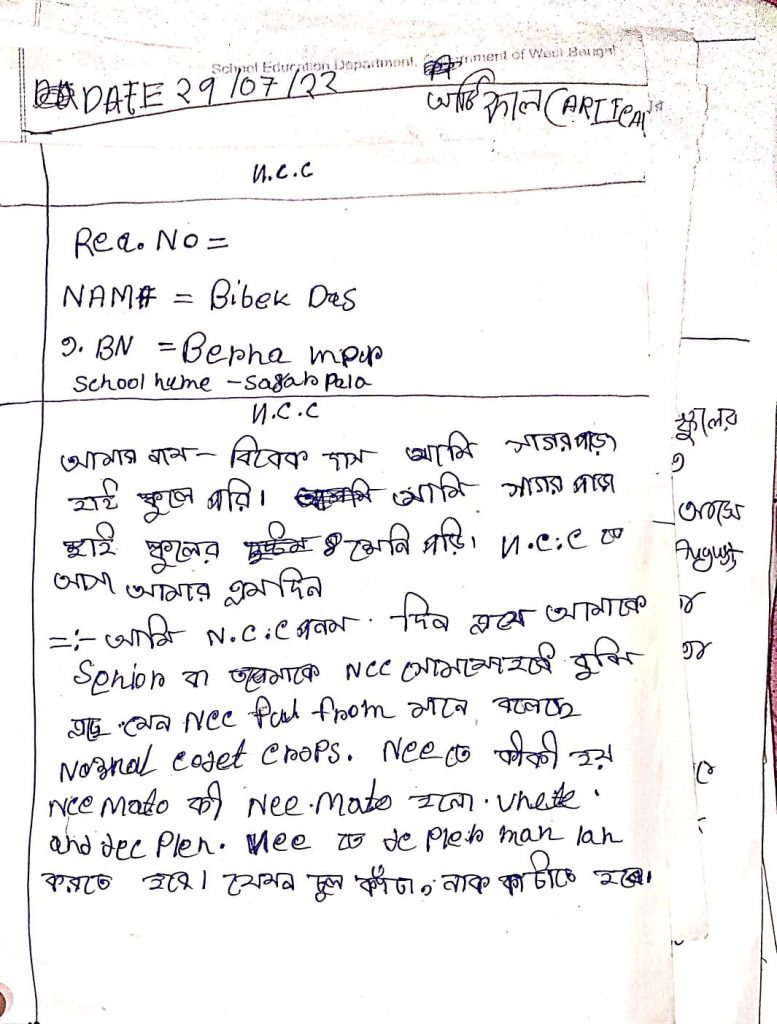 School Education Department, Government of West Bengal
DATE 29/07/22
আর্টিকাল (ARTICAL
N.C.C
Reg. No =
NAME = Bibek Das
BN = Berhampur
School hume - Sagarpala
N.C.C
আমার নাম - বিবেক দাস আমি সাগরপাড়া
হাই স্কুলে পরি। আমি সাগর পাড়া
হাই স্কুলের ৪ শ্রেনি পড়ি। N.C.C তে
আসা আমার প্রথম দিন
=:- আমি N.C.C প্রথম দিন আমাকে
Senion রা NCC
NCC Ful from মানে বলেছে
Nosnal codet Crops. Ncc তে কীকী হয়
Ncc Mato কী Ncc Mato হলো. Unete
and dec Plen. Ncc তে de Plen man lan
করতে হবে। যেমন চুল কাঁটা, নোক কাটাতে হবে।
স্কুলের
আসে
August